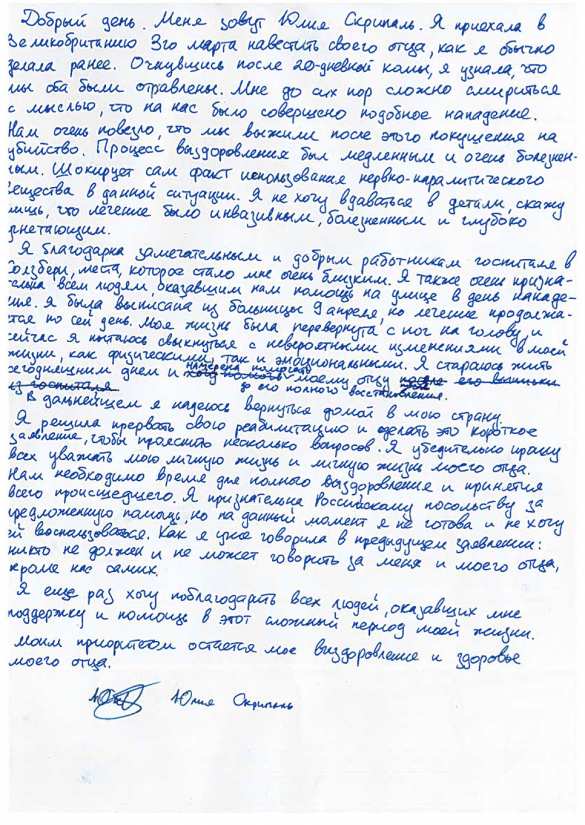 Добрый день. Меня зовут Юлия Скрипаль. Я приехала в
Великобританию 3го марта навестить своего отца, как я обычно
делала ранее. Очнувшись после 20-дневной комы, я узнала, что
мы оба были отравлены. Мне до сих пор сложно смириться
с мыслью, что на нас было совершено подобное нападение.
Нам очень повезло, что мы выжили после этого покушения на
убийство. Процесс выздоровления был медленным и очень болезнен-
ным. Шокирует сам факт использования нервно-паралитического
вещества в данной ситуации. Я не хочу вдаваться в детали, скажу
лишь, что лечение было инвазивным, болезненным и глубоко
угнетающим.
Я благодарна замечательным и добрым работникам госпиталя в
Солзбери, места, которое стало мне очень близким. Я также очень призна-
тельна всем людям, оказавшим нам помощь на улице в день нападе-
ния. Я была выписана из больницы 9 апреля, но лечение продолжа-
ется по сей день. Моя жизнь была перевернута с ног на голову, и
сейчас я пытаюсь свыкнуться с невероятными изменениями в моей
жизни, как физическими, так и эмоциональными. Я стараюсь жить
намерена помогать
сегодняшним днем и хочу помогать моему отцу после его выписки
из госпиталя до его полного восстановления.
В дальнейшем я надеюсь вернуться домой в мою страну.
Я решила прервать свою реабилитацию и сделать это короткое
заявление, чтобы прояснить несколько вопросов. Я убедительно прошу
всех уважать мою личную жизнь и личную жизнь моего отца.
Нам необходимо время для полного выздоровления и принятия
всего происшедшего. Я признательна Российскому посольству за
предложенную помощь, но на данный момент я не готова и не хочу
ей воспользоваться. Как я уже говорила в предыдущем заявлении:
никто не должен и не может говорить за меня и моего отца,
кроме нас самих.
Я еще раз хочу поблагодарить всех людей, оказавших мне
поддержку и помощь в этот сложный период моей жизни.
Моим приоритетом остается мое выздоровление и здоровье
моего отца.
Юлия Скрипаль